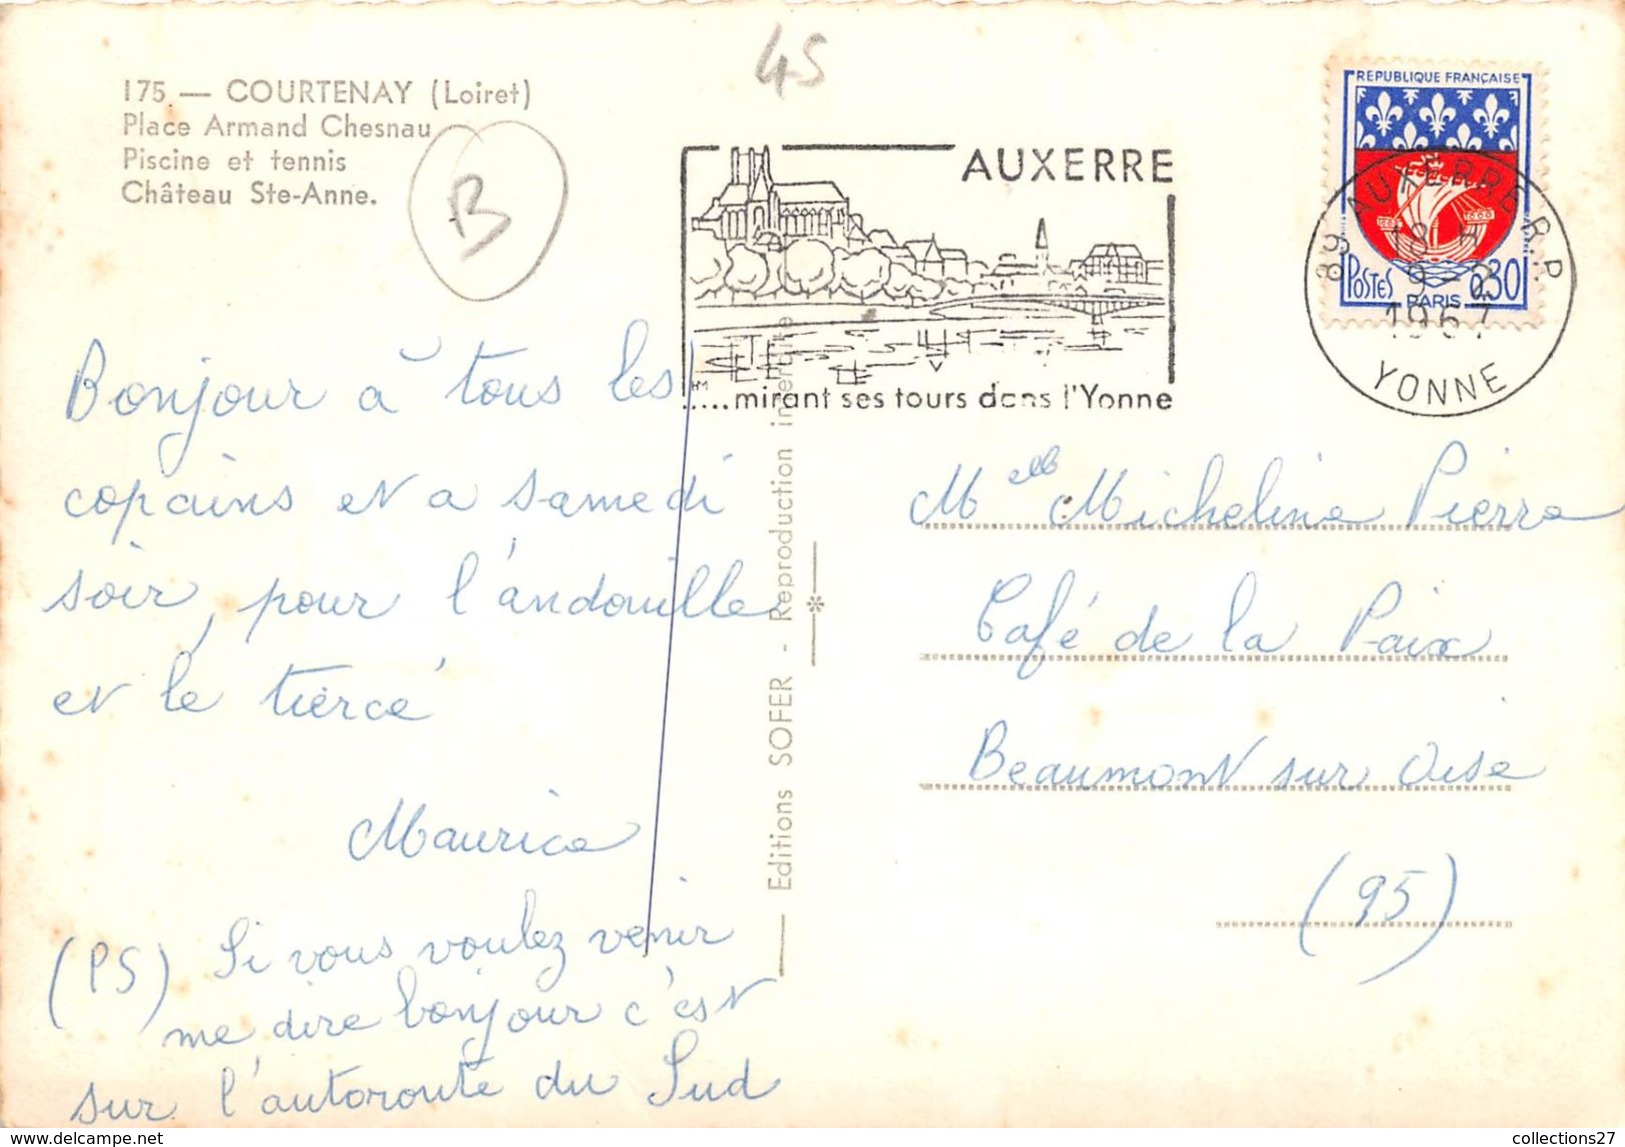 45
175 — COURTENAY (Loiret)
Place Armand Chesnau
Piscine et tennis
Château Ste-Anne.
B
AUXERRE
.....mirant ses tours dans l'Yonne
HM
REPUBLIQUE FRANÇAISE
POSTES PARIS 0,30
89 AUXERRE R.P.
18 H
9-2
1967
YONNE
Bonjour à tous les
copains et a samedi
soir, pour l'andouille
et le tiercé
Maurice
(PS) Si vous voulez venir
me dire bonjour c'est
sur l'autoroute du Sud
Editions SOFER - Reproduction interdite
Melle Micheline Pierre
Café de la Paix
Beaumont sur Oise
(95)
https://www.delcampe.net
collections27